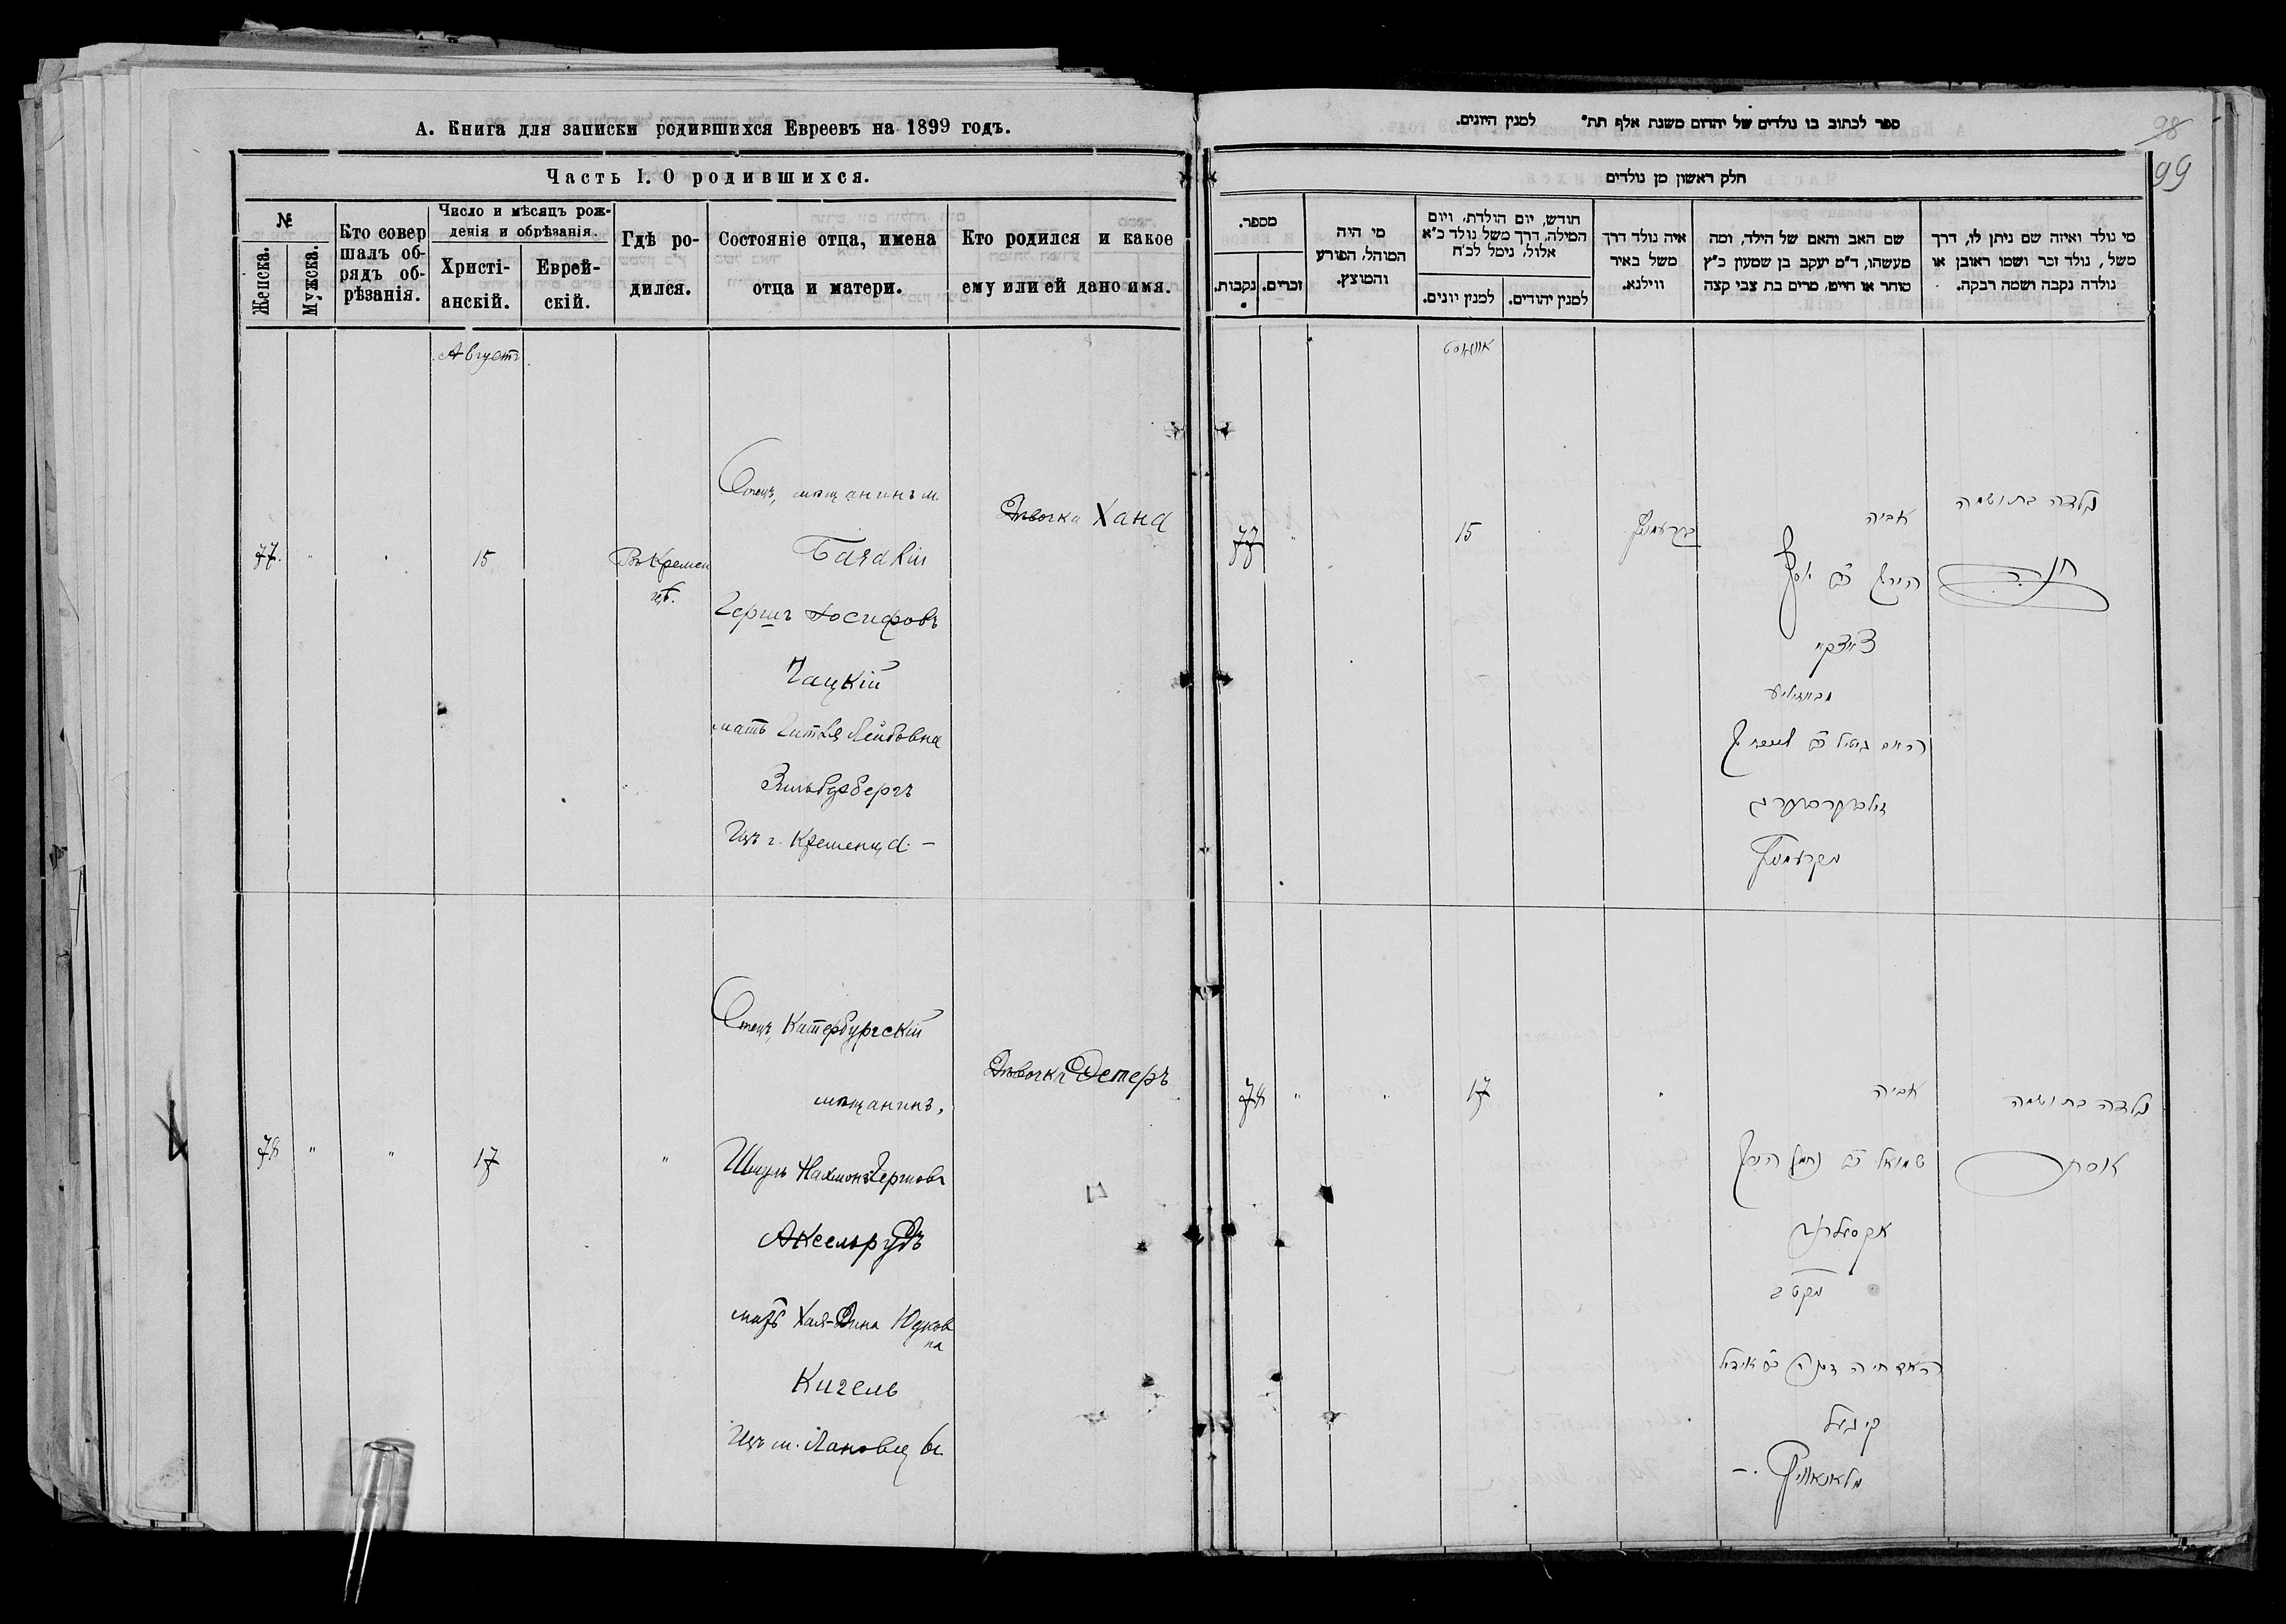 А. Книга для записки родившихся Евреевъ на 1899 годъ.
Часть I. О родившихся.
№
Женска.
Мужска.
Кто совер
шалъ об-
рядъ об-
рѣзанія.
Число и мѣсяцъ рож-
денія и обрѣзанія.
Христі-
анскій.
Еврей-
скій.
Гдѣ ро-
дился.
Состояніе отца, имена
отца и матери.
Кто родился и какое
ему или ей дано имя.
Августъ
77.
15
Въ Кремен
цѣ.
Отецъ, мѣщанинъ м.
Гершъ Іосифовъ
Чацкій
мать Гитля Лейбовна
Изъ г. Кременца. –
Дѣвочка Хана
78
"
"
17
"
Отецъ, Катербургскій
мѣщанинъ,
Шмуль Нахманъ Гершовъ
Аксельрудъ
мать Хая-Дина Юдков
на
Кигель
Изъ м. Лановец
Дѣвочка Эстеръ
ספר לכתוב בו נולדים של יהדום משנת אלף תת" למנין היונים.
98
99
חלק ראשון מן נולדים
מספר.
נקבות.
זכרים.
מי היה
המוהל, הפורע
והמוצץ.
חודש, יום הולדת, ויום
המילה, דרך משל נולד כ"א
אלול, נימל לכ"ח
למנין יונים.
למנין יהודים.
איה נולד דרך
משל באיר
ווילנא.
שם האב והאם של הילד, ומה
מעשהו, ד"מ יעקב בן שמעון כ"ץ
סוחר או חייט, מרים בת צבי קצה
מי נולד ואיזה שם ניתן לו, דרך
משל, נולד זכר ושמו ראובן או
נולדה נקבה ושמה רבקה.
אווגוסט
77
15
אביה
נולדה בת ושמה
חנה
78
"
"
17
אביה
שמואל נחמן הירש
אקסעלרוד
קיגעל
נולדה בת ושמה
אסתר